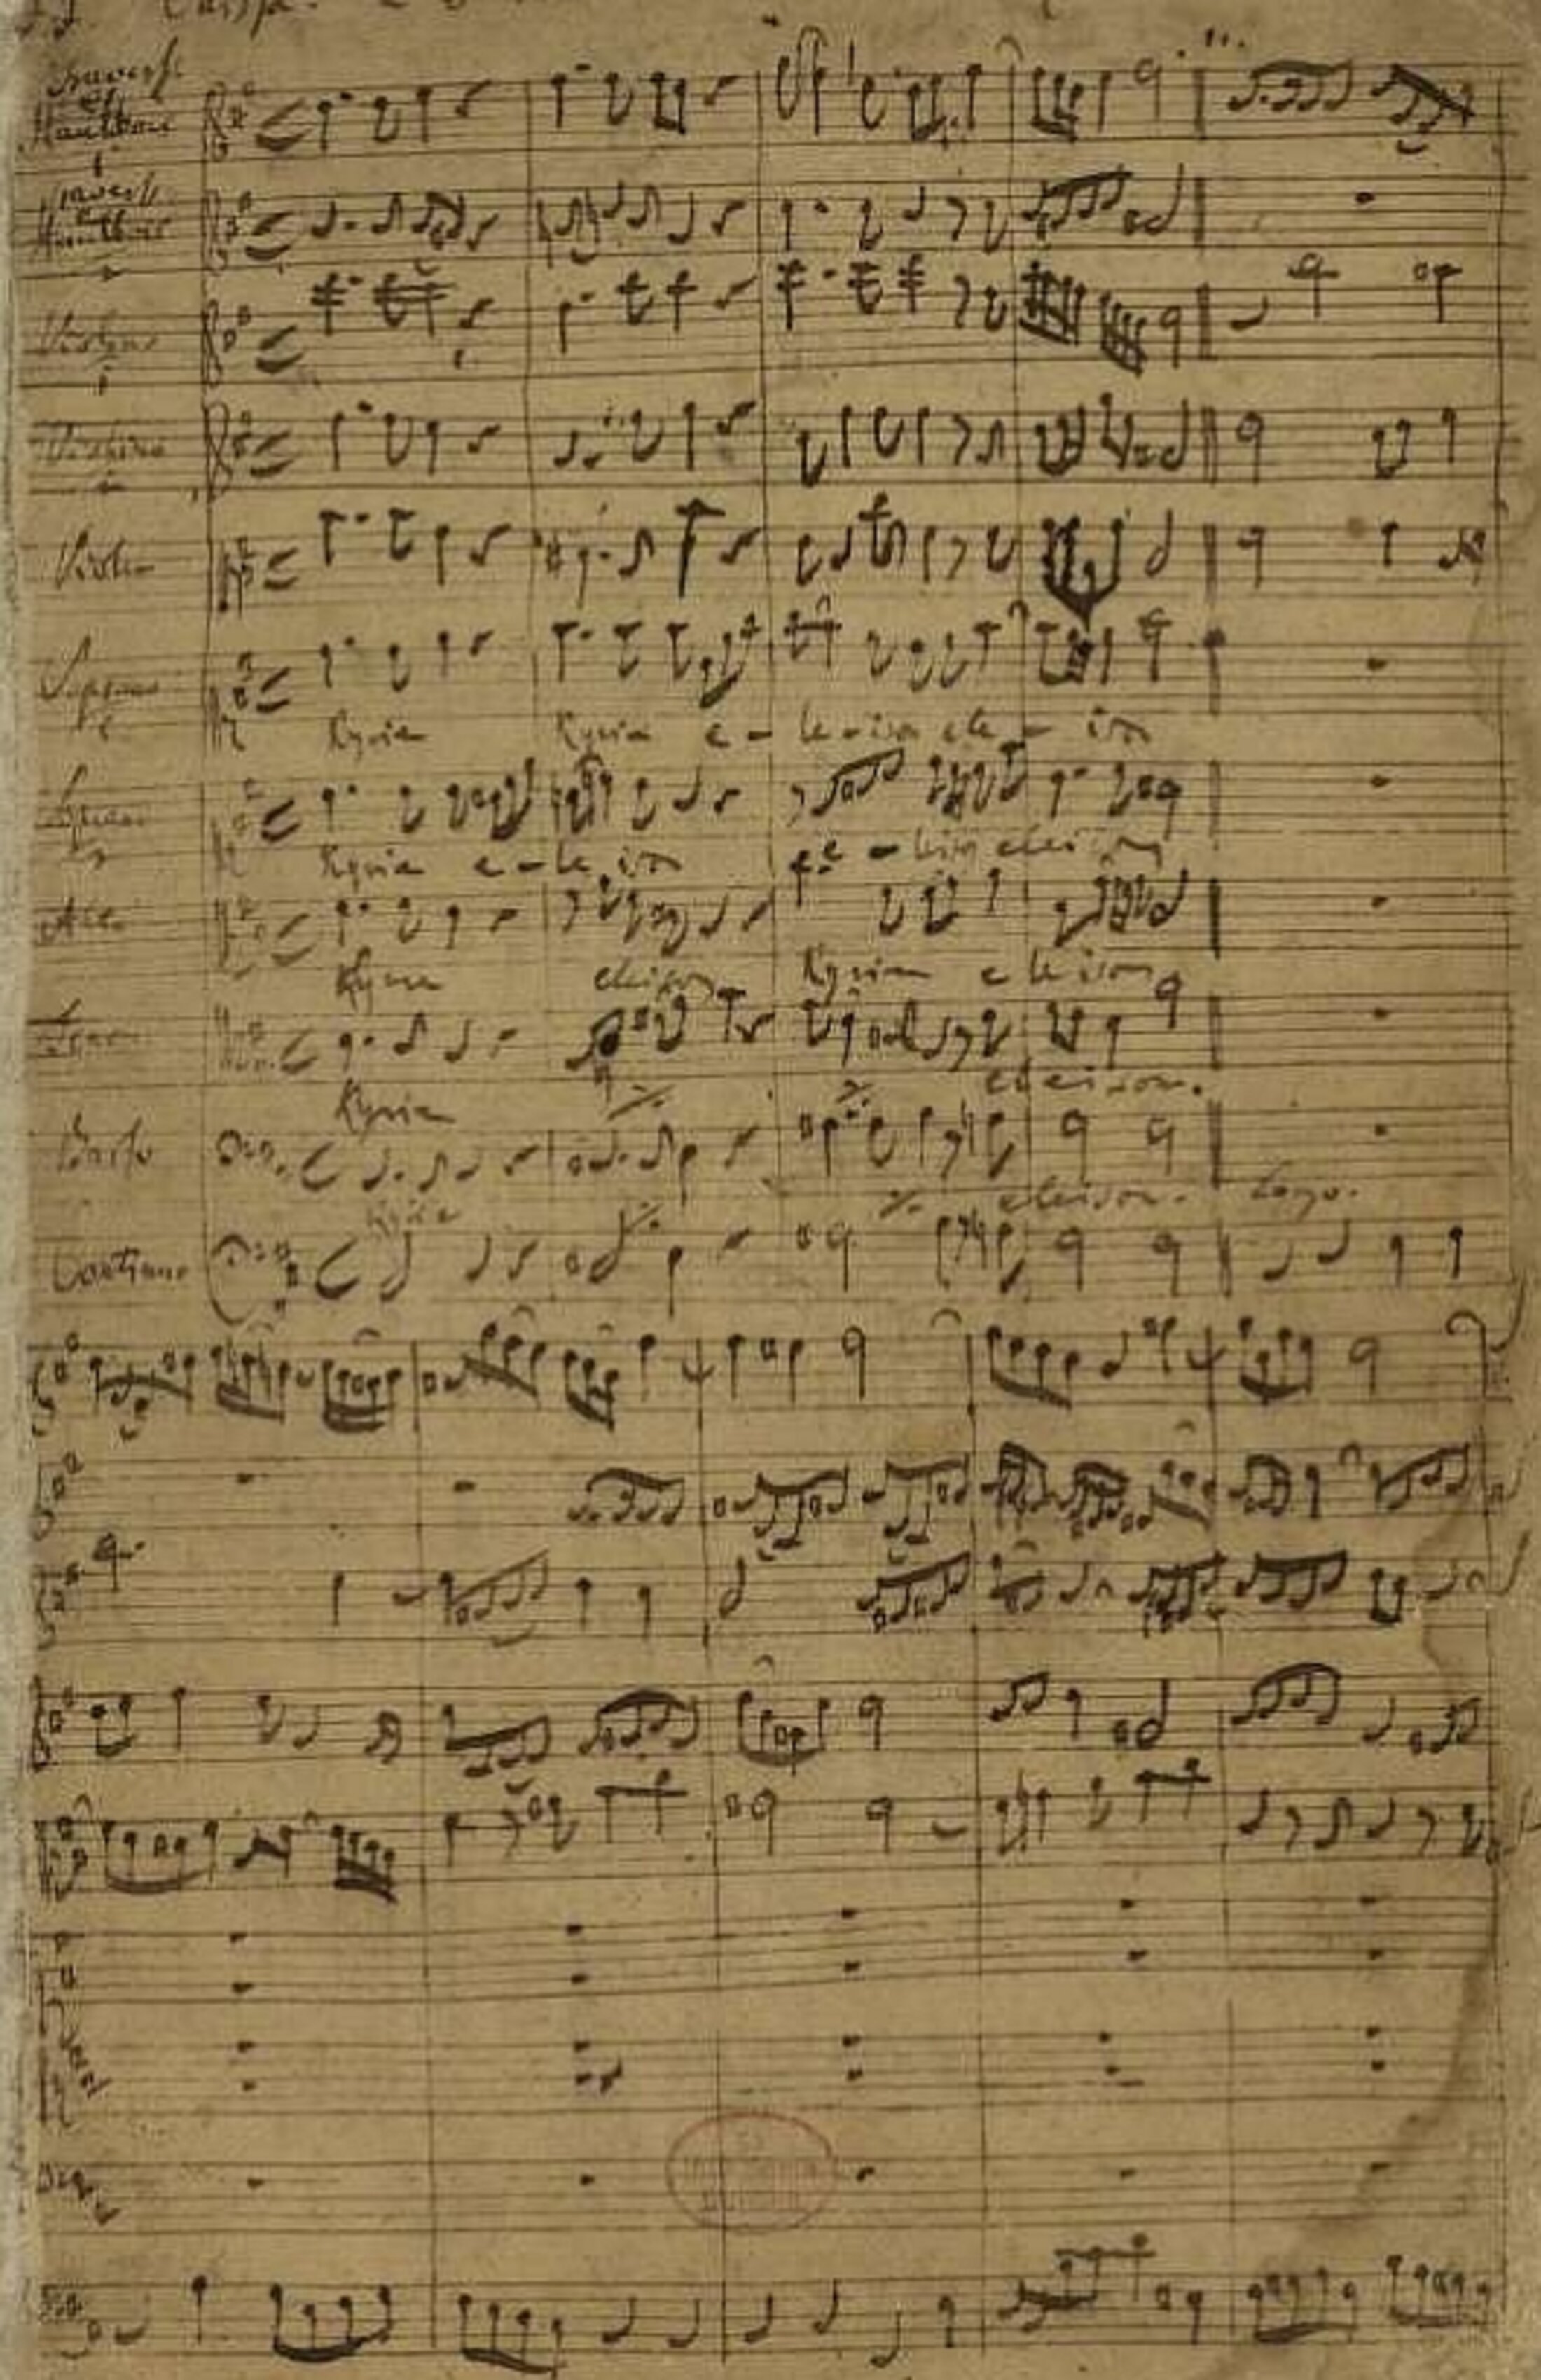 J J Missa.
Travers.
et
Hautbois
1
Travers.
Hautbois
2
Violino
1
Violino
2
Viola
Soprano
1
Kyrie Kyrie e - le - ison ele - ison
Sopran
2
Kyrie e - le ison e - leison eleison
Alto
Kyrie eleison Kyrie eleison
Tenor
Kyrie ٪ ٪ eleison.
Basso
Kyrie ٪ ٪ eleison. Largo.
Continuo